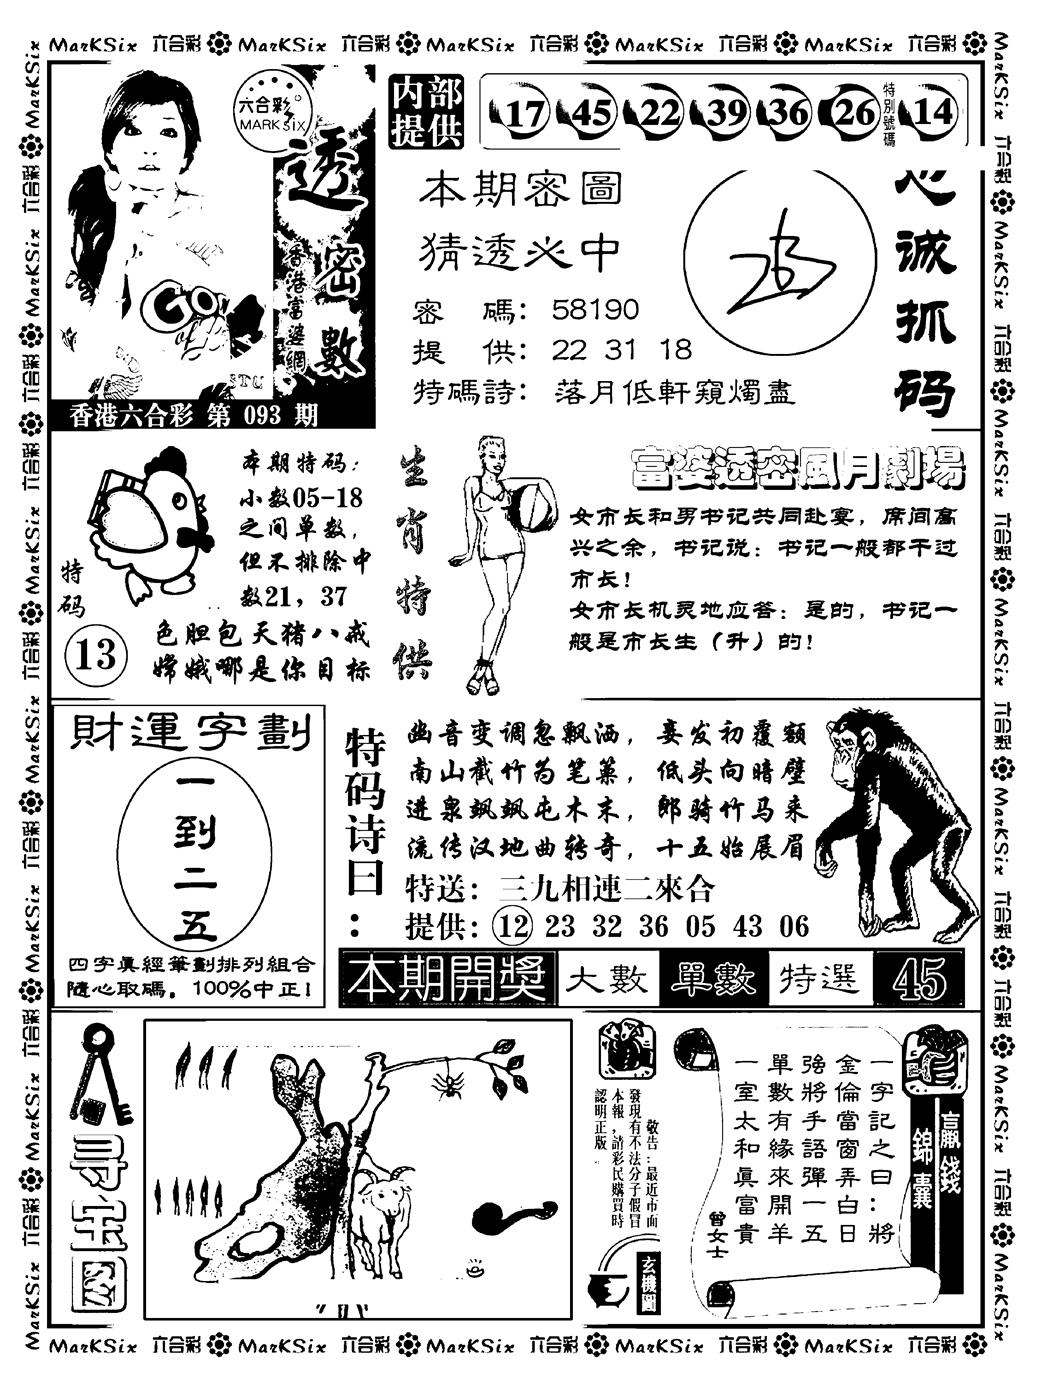 MarKSix 六合彩 MarKSix 六合彩 MarKSix 六合彩 MarKSix 六合彩 MarKSix 六合彩
六合彩
MARK SIX
透密數
香港富婆網
香港六合彩 第 093 期
内部提供
17 45 22 39 36 26 特別號碼 14
本期密圖
猜透必中
密 碼: 58190
提 供: 22 31 18
特碼詩: 落月低軒窺燭盡
心诚抓码
本期特码:
小数05-18
之间单数,
但不排除中
数21, 37
特码
13
色胆包天猪八戒
嫦娥哪是你目标
生肖特供
富婆透密風月劇場
女市长和男书记共同赴宴, 席间高
兴之余, 书记说: 书记一般都干过
市长!
女市长机灵地应答: 是的, 书记一
般是市长生 (升) 的!
財運字劃
一到二五
四字真經筆劃排列組合
隨心取碼. 100%中正!
特码诗曰:
幽音变调忽飘洒, 妾发初覆额
南山截竹为笔篥, 低头向暗壁
进泉飒飒屯木末, 郎骑竹马来
流传汉地曲转奇, 十五始展眉
特送: 三九相連二來合
提供: 12 23 32 36 05 43 06
本期開獎 大數 單數 特選 45
寻宝图
敬告:最近市面
發現有不法分子假冒
本報,請彩民購買時
認明正版.
玄機圖
贏錢錦囊
一字記之曰:將
金倫當窗弄白日
強將手語彈一五
單數有緣來開羊
一室太和真富貴
曾女士
MarKSix 六合彩 MarKSix 六合彩 MarKSix 六合彩 MarKSix 六合彩 MarKSix 六合彩